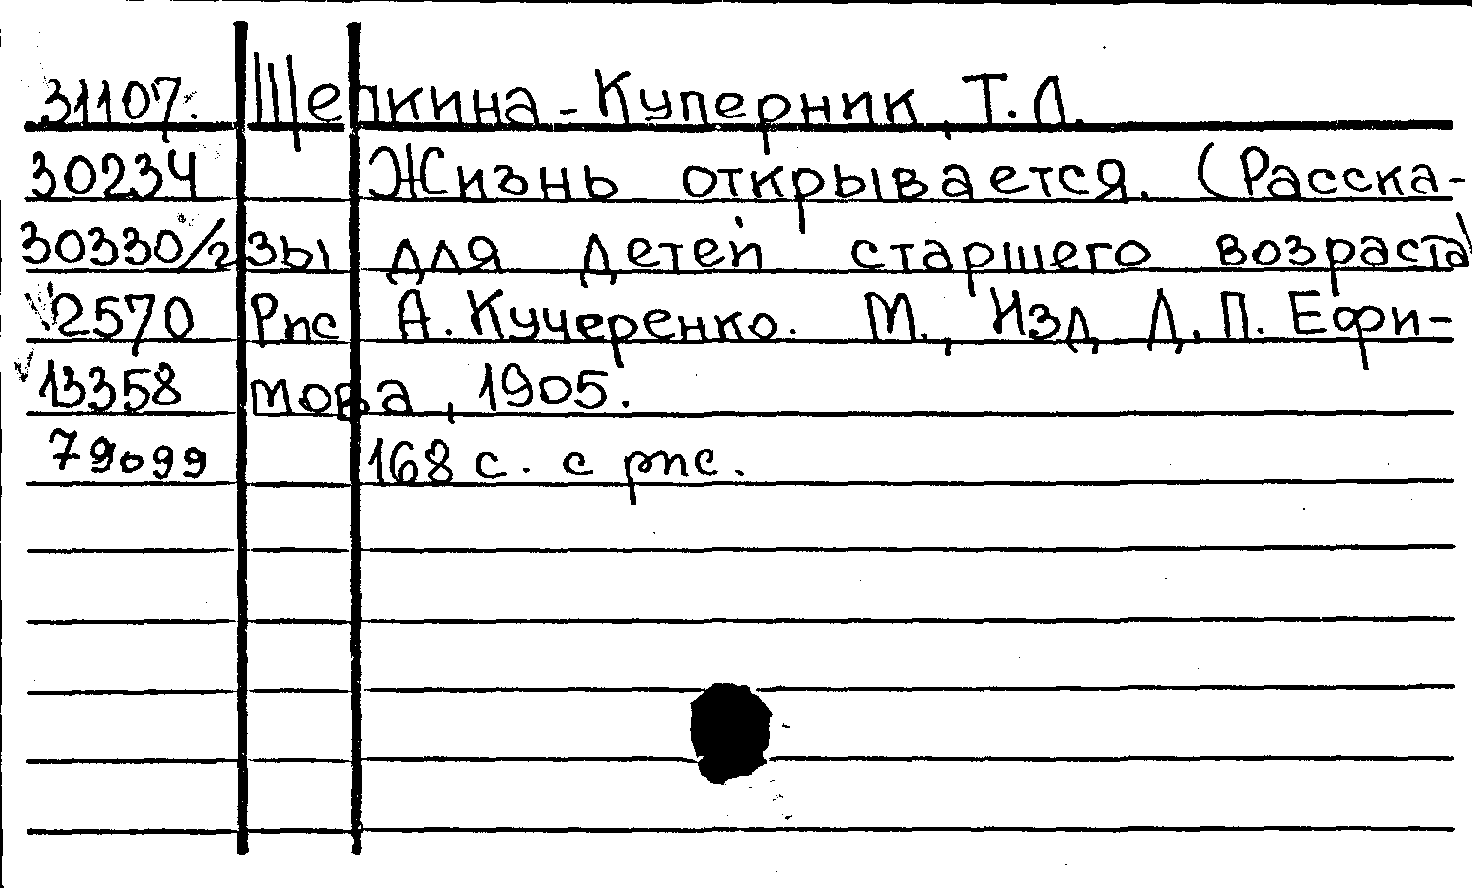 31107. Щепкина-Куперник, Т.Л.
30234 Жизнь открывается. (Расска-
30330/2 зы для детей старшего возраста)
2570 Рис А. Кучеренко. М., Изд. Д.П. Ефи-
13358 мова, 1905.
79099 168 с. с рис.